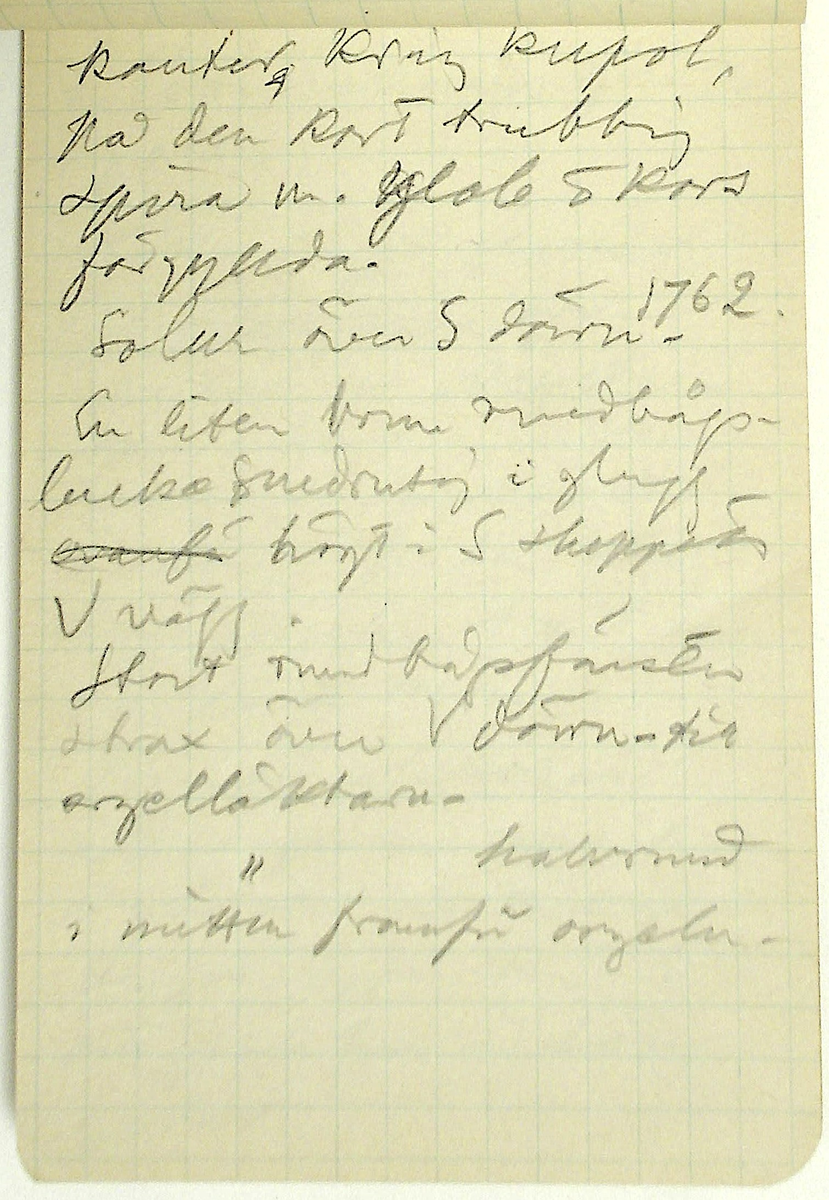 kanter, kring kupol,
på den kort trubbig
spira m. glob o kors
förgyllda.
Solur över S dörrn. 1762.
En liten rundbågs-
lucka snedrutig i glugg
högt i S
V vägg.
Stort rundbågsfönster
strax över V dörrn - till
orgelläktarn -
" halvrund
i mitten framför orgeln -